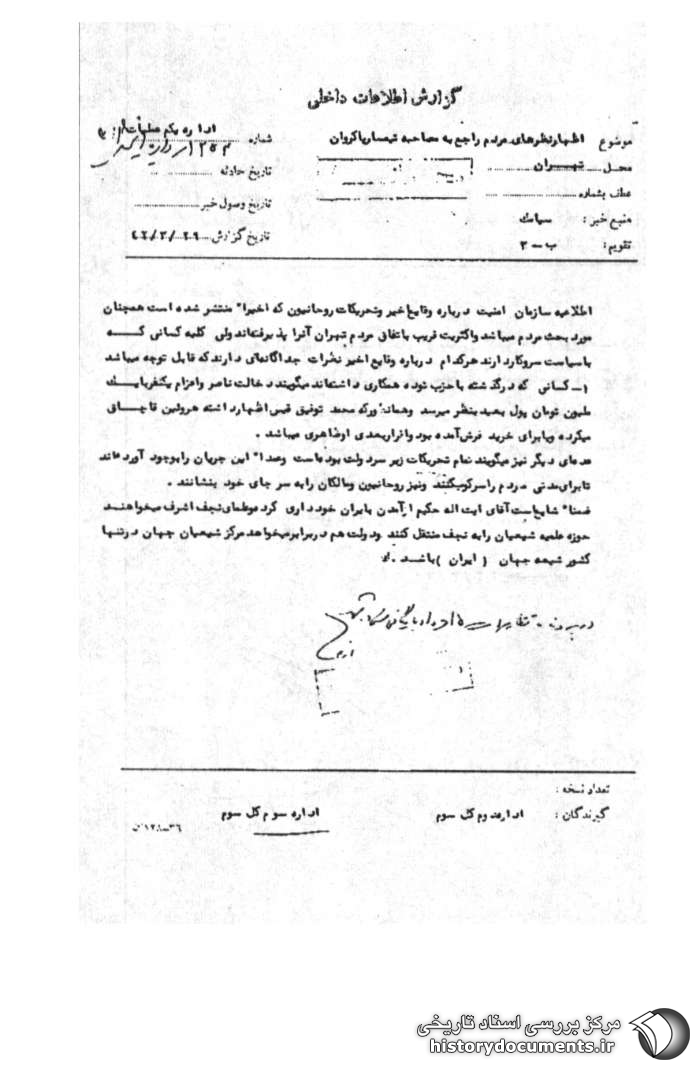 گزارش اطلاعات داخلی
موضوع اظهارنظرهای مردم راجع به مصاحبه تیمسار پاکروان
محل تهران
عطف بشماره
منبع خبر: سیامک
تقویم: ب - ۳
اداره یکم عملیات
شماره
تاریخ حادثه
تاریخ وصول خبر
تاریخ گزارش ۴۲/۳/۲۹
اطلاعیه سازمان امنیت درباره وقایع خیر وتحریکات روحانیون که اخیرا" منتشر شده است همچنان
مورد بحث مردم میباشد واکثریت قریب باتفاق مردم تهران آنرا پذیرفته‌اند ولی کلیه کسانی که
باسیاست سروکاردارند هرکدام درباره وقایع اخیر نظرات جداگانه‌ای دارند که قابل توجه میباشد
۱- کسانی که درگذشته باحزب توده همکاری داشته‌اند میگویند دخالت ناصر واعزام یکنفربایک
ملیون تومان پول بعید بنظر میرسد وهمانطورکه محمد توفیق قیس اظهارداشته هروئین قاچاق
میکرده ویابرای خرید فرش آمده بود واقراربعدی اوظاهری میباشد .
عده‌ای دیگر نیز میگویند تمام تحریکات زیر سردولت بوده‌است وعمدا" این جریان رابوجود آورده‌اند
تابرای‌مدتی مردم راسرکوب‌کنند ونیز روحانیون ومالکان رابه سر جای خود بنشانند .
ضمنا" شایع‌است آقای آیت اله حکیم ازآمدن بایران خودداری کرده‌وعلمای‌نجف اشرف میخواهند
حوزه علمیه شیعیان رابه نجف منتقل کنند ودولت هم دربرابرمیخواهد مرکز شیعیان جهان درتنها
کشور شیعه جهان ( ایران )باشد .
تعداد نسخه :
گیرندگان : اداره‌دوم کل سوم اداره سوم کل سوم
مرکز بررسی اسناد تاریخی
historydocuments.ir